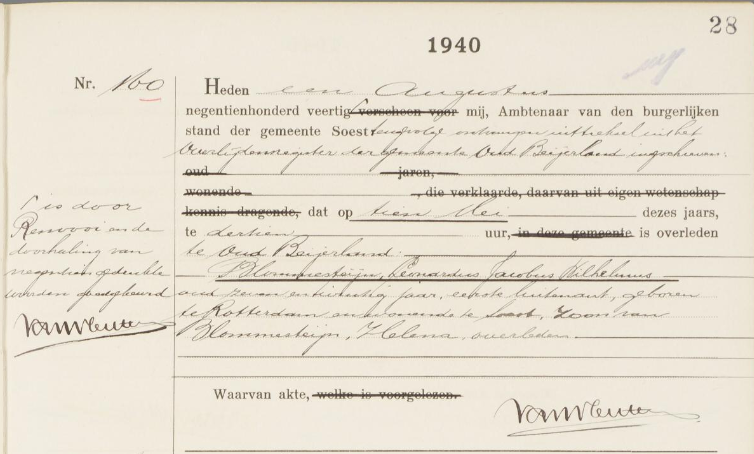 28
1940
Nr. 160
Heden een Augustus
negentienhonderd veertig verscheen voor mij, Ambtenaar van den burgerlijken
stand der gemeente Soest tengevolge ontvangen uittreksel uit het
Overlijdensregister der gemeente Oud Beijerland ingeschreven:
oud jaren,
wonende , die verklaarde, daarvan uit eigen wetenschap
kennis dragende, dat op tien Mei dezes jaars,
te dertien uur, in deze gemeente is overleden
te Oud Beijerland:
Blommesteijn, Leonardus Jacobus Wilhelmus
oud zeven en twintig jaar, eerste luitenant, geboren
te Rotterdam en wonende te Soest, zoon van
Blommesteijn, Helena, overleden.
Waarvan akte, welke is voorgelezen.
is door
Renvooi en de
doorhaling van
negentien gedrukte
woorden goedgekeurd